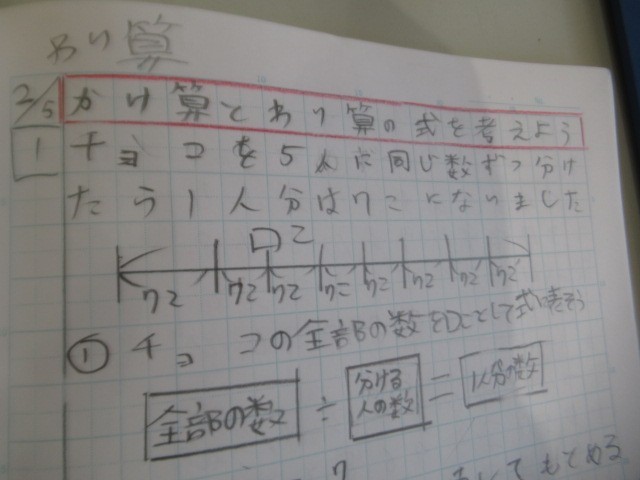 わり算
2/5 かけ算とわり算の式を考えよう
1 チョコを5人に同じ数ずつ分け
たら1人分は7こになりました
□こ
7こ 7こ 7こ 7こ 7こ 7こ 7こ 7こ
① チョコの全部の数を□ことして式に表そう
全部の数 ÷ 分ける人の数 = 1人分の数
7
してもとめる